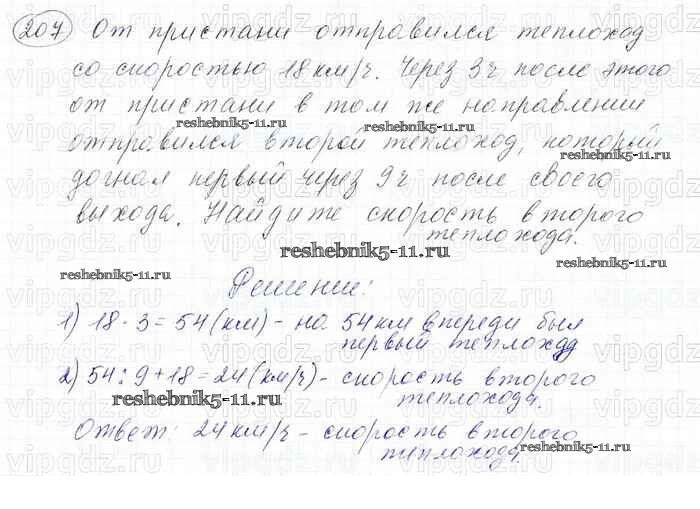 207 От пристани отправился теплоход
со скоростью 18 км/ч. Через 3ч после этого
от пристани в том же направлении
отправился второй теплоход, который
догнал первый через 9ч после своего
выхода. Найдите скорость второго
теплохода.
Решение:
1) 18 · 3 = 54 (км) - на 54 км впереди был
первый теплоход
2) 54 : 9 + 18 = 24 (км/ч) - скорость второго
теплохода.
Ответ: 24 км/ч - скорость второго
теплохода.
reshebnik5-11.ru
reshebnik5-11.ru
reshebnik5-11.ru
reshebnik5-11.ru
reshebnik5-11.ru
reshebnik5-11.ru
reshebnik5-11.ru
reshebnik5-11.ru
vipgdz.ru